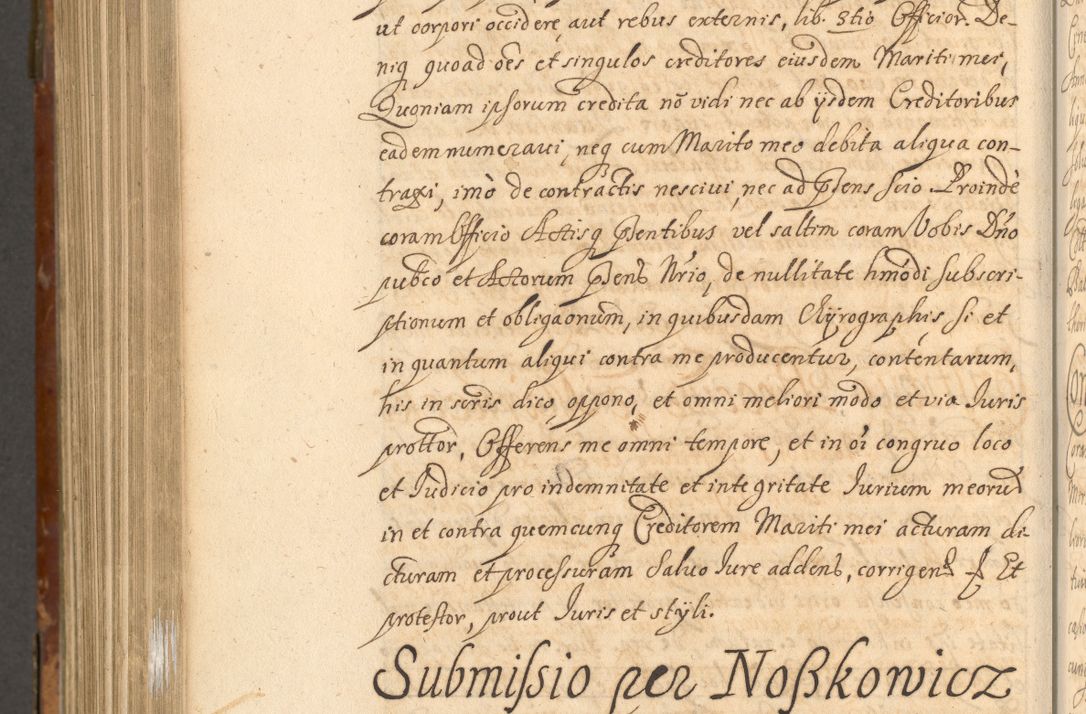 ut corpori occidere, aut rebus externis, lib. 3tio Officior. De-
niq quoad oes et singulos creditores eiusdem Mariti mei,
Quoniam ipsorum credita nõ vidi nec ab ijsdem Creditoribus
eadem numeraui, neq cum Marito meo debita aliqua con-
traxi, imò de contractis nesciui, nec ad pñens scio. Proindè
coram Officio Actisq pñentibus vel saltim coram Vobis Dño
pubco et Actorum pñens Nrio, de nullitate hmõdi subscri-
ptionum et obligaonum, in quibusdam Chÿrographis si et
in quantum aliqui contra me producentur, contentarum,
his in scris dico, oppono, et omni meliori modo et via Iuris
prottor, Offerens me omni tempore, et in oi congruo loco
et Iudicio pro indemnitate et integritate Iurium meorum
in et contra quemcunq Creditorem Mariti mei acturam di-
cturam et processuram Saluo Iure addens, corrigens Et
protestor, prout Iuris et stÿli.
Submissio per Noßkowicz